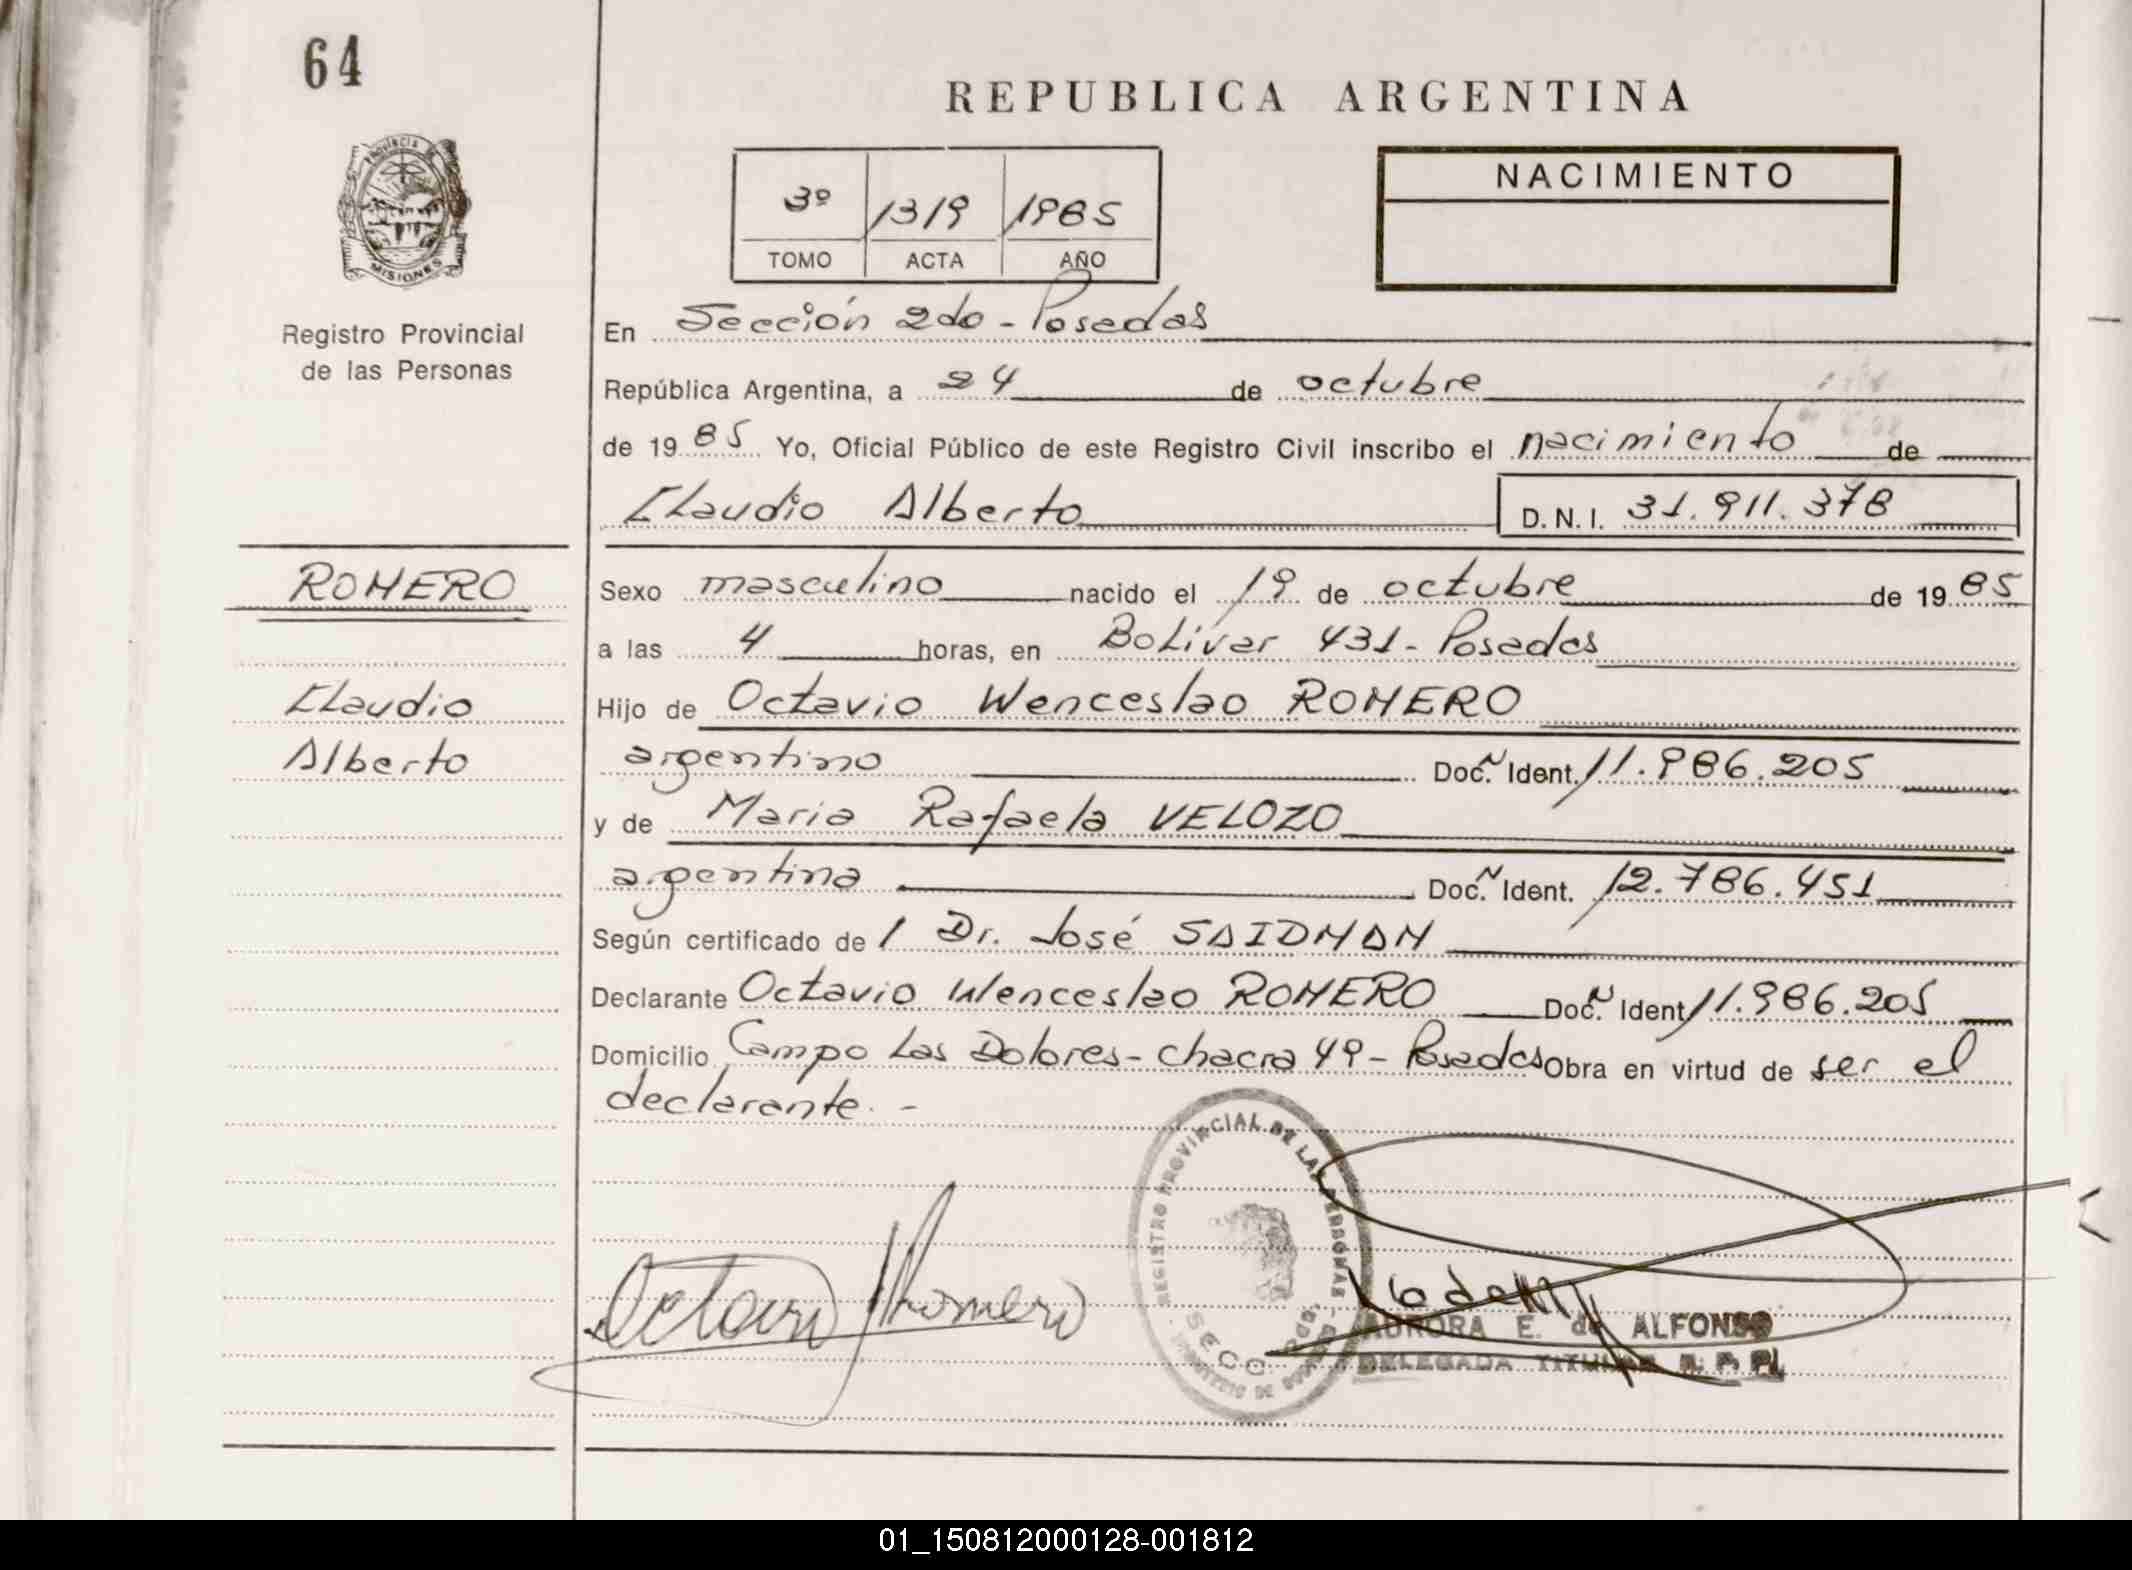 64
REPUBLICA ARGENTINA
Provincia de
MISIONES
Registro Provincial
de las Personas
3º 1319 1985
TOMO ACTA AÑO
NACIMIENTO
En Sección 2da - Posadas
República Argentina, a 24 de octubre
de 1985 Yo, Oficial Público de este Registro Civil inscribo el nacimiento de
Claudio Alberto D.N.I. 31.911.378
ROMERO
Claudio
Alberto
Sexo masculino nacido el 19 de octubre de 1985
a las 4 horas, en Bolivar 431 - Posadas
Hijo de Octavio Wenceslao ROMERO
argentino Doc. N Ident. 11.986.205
y de Maria Rafaela VELOZO
argentina Doc. N Ident. 12.786.451
Según certificado de / Dr. José SAIDMAN
Declarante Octavio Wenceslao ROMERO Doc. N Ident. 11.986.205
Domicilio Campo Las Dolores - Chacra 49 - Posadas Obra en virtud de ser el
declarante. -
REGISTRO PROVINCIAL DE LAS PERSONAS
SECC.
Octavio Romero
AURORA E. de ALFONSO
DELEGADA TITULAR R. P. P.
01_150812000128-001812